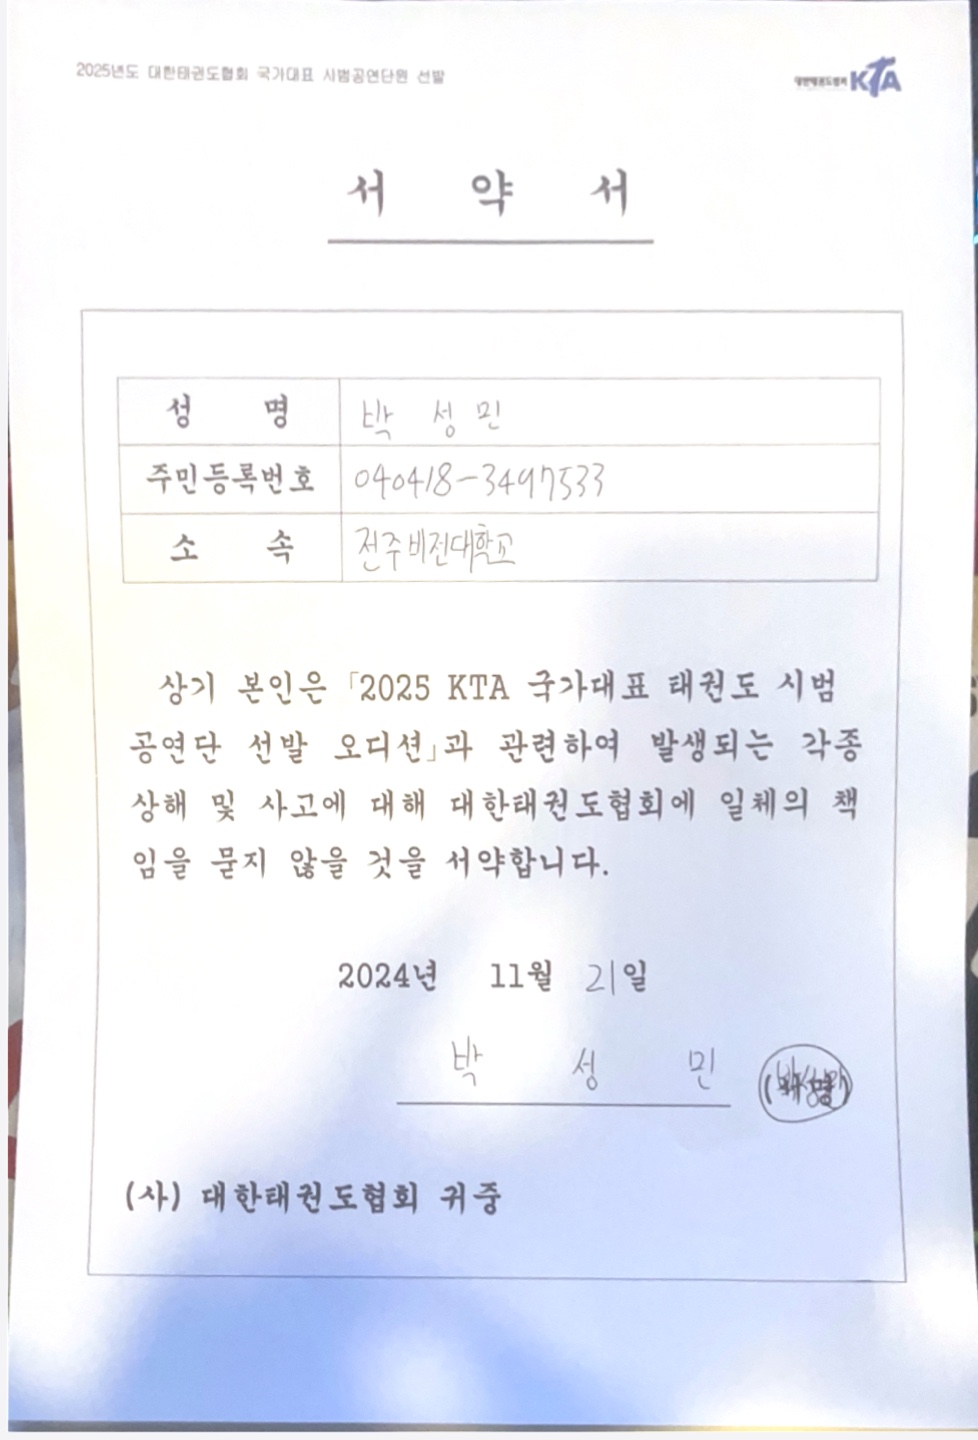 2025년도 대한태권도협회 국가대표 시범공연단원 선발
대한태권도협회 KTA
서 약 서
성 명 박 성 민
주민등록번호 040418-3497533
소 속 전주비전대학교
상기 본인은 「2025 KTA 국가대표 태권도 시범
공연단 선발 오디션」과 관련하여 발생되는 각종
상해 및 사고에 대해 대한태권도협회에 일체의 책
임을 묻지 않을 것을 서약합니다.
2024년 11월 21일
박 성 민
(사) 대한태권도협회 귀중